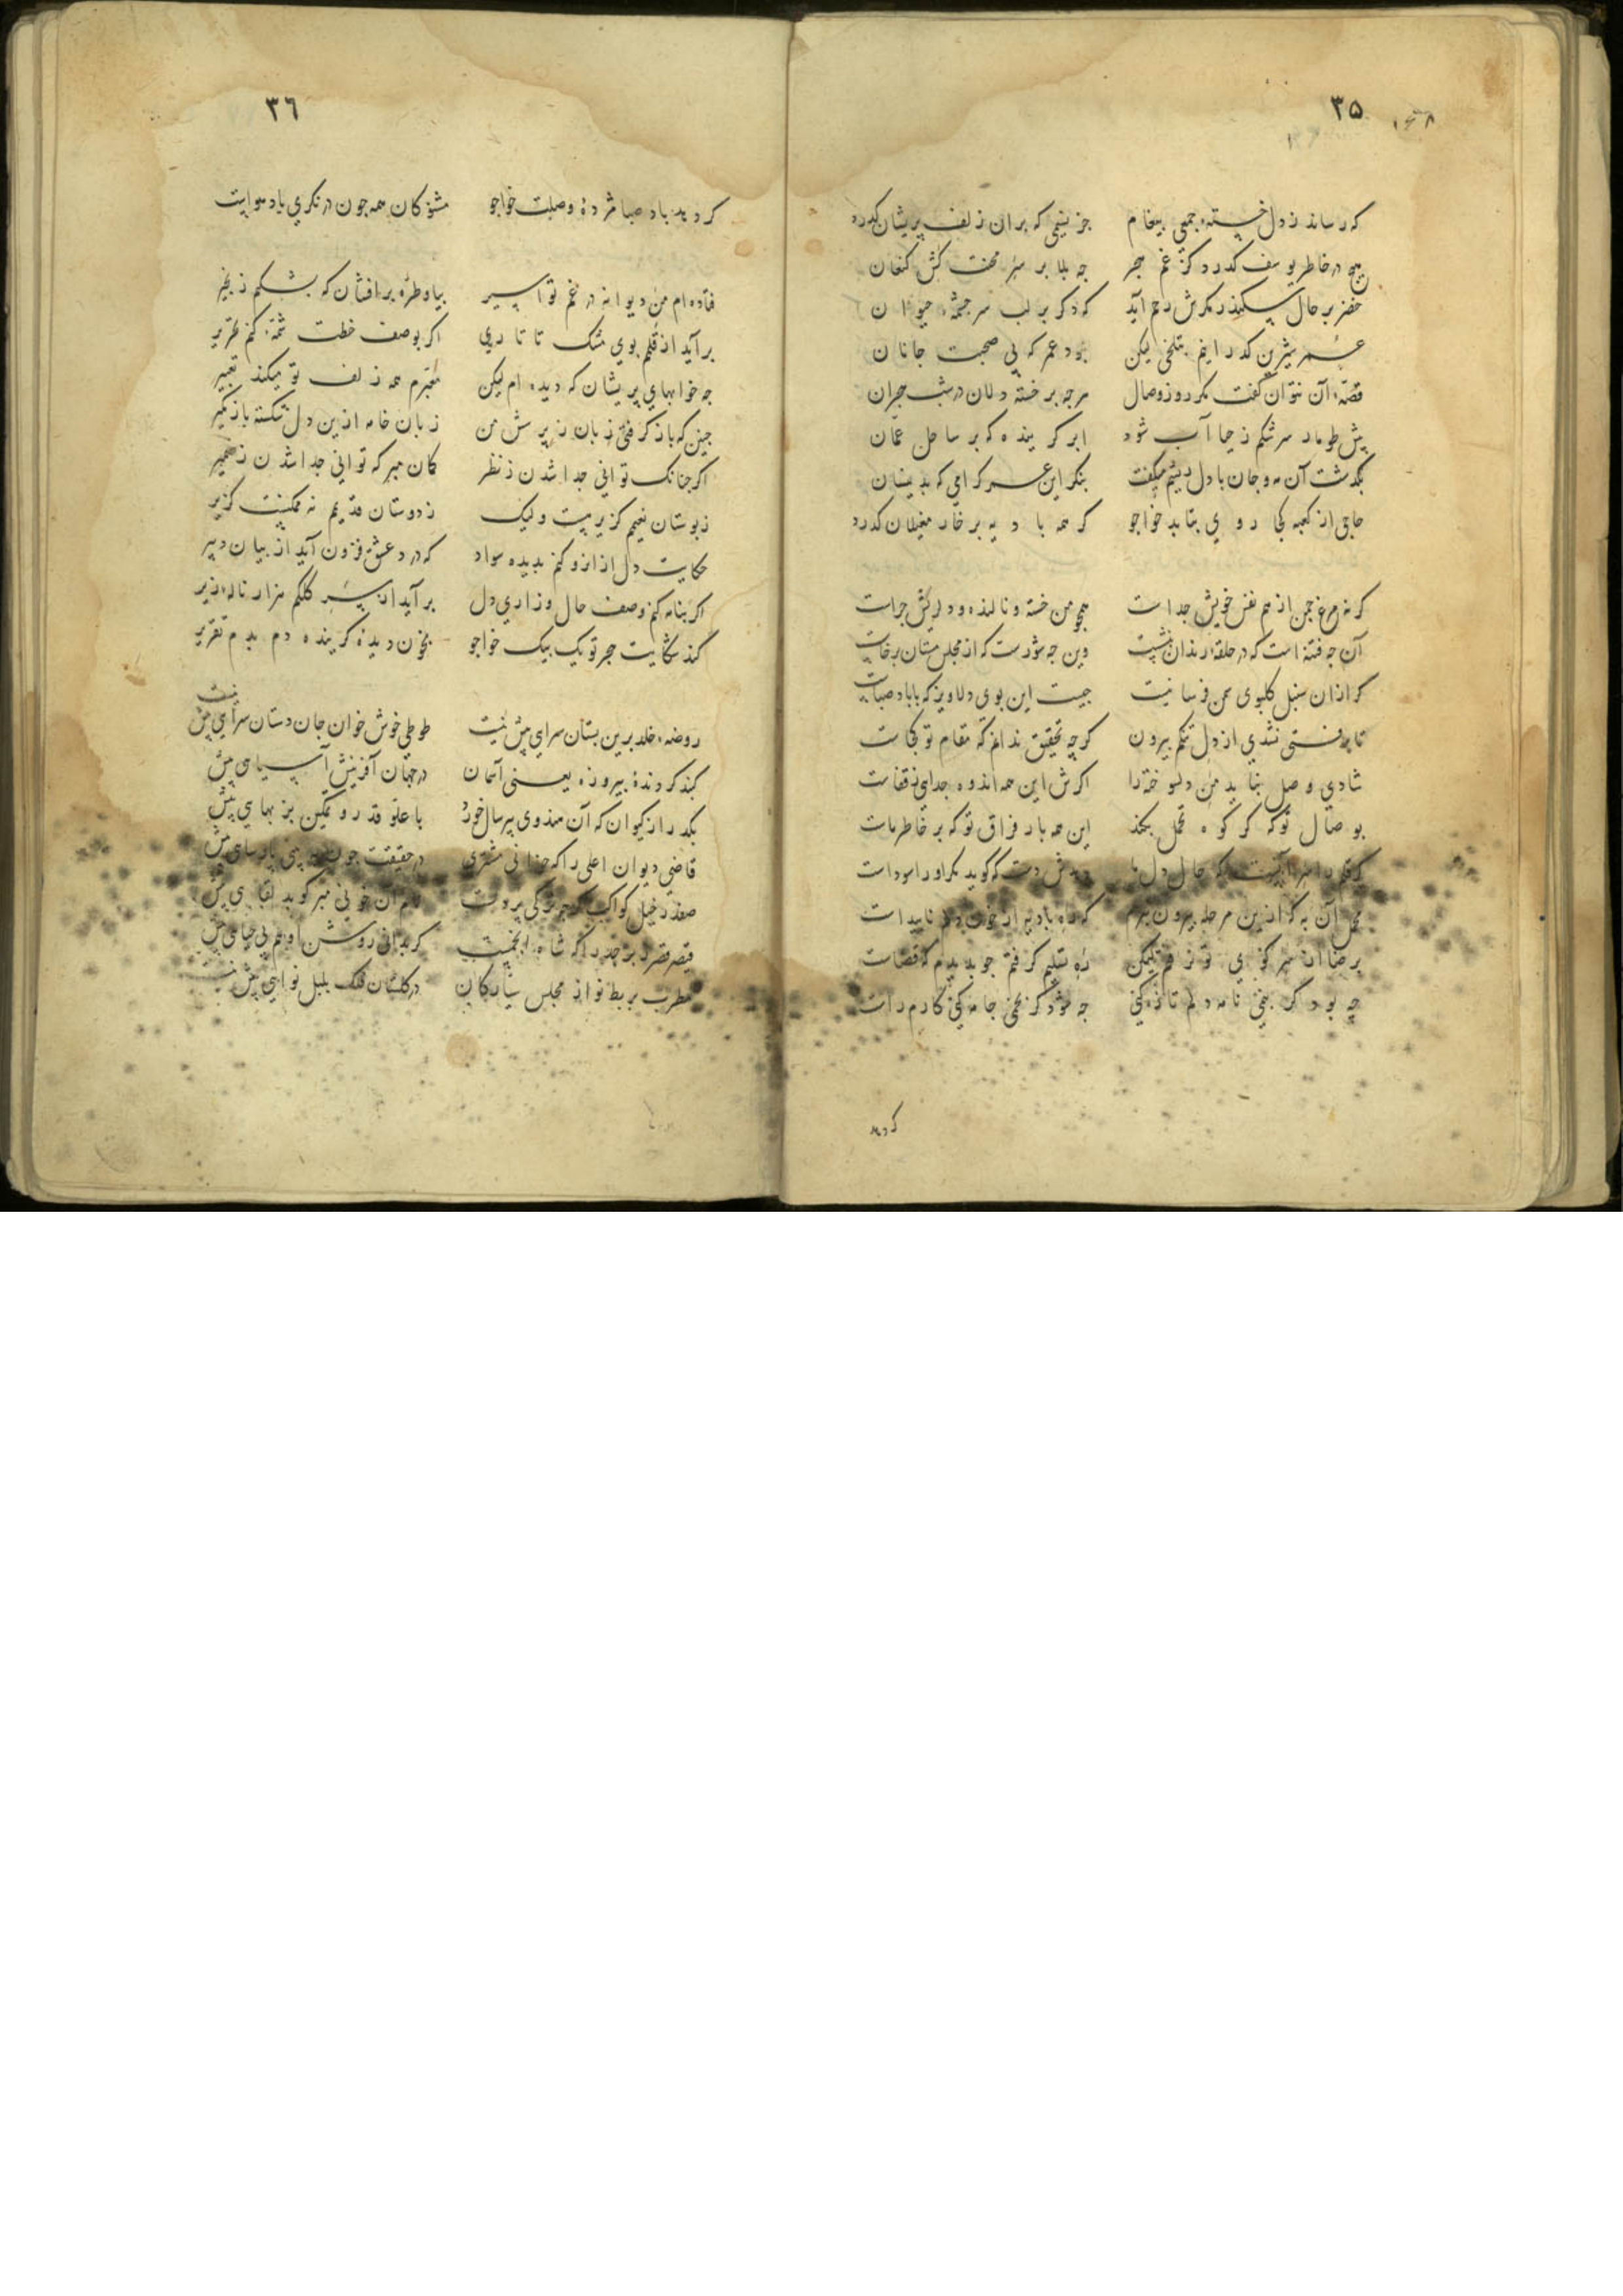 ۳۵
که رساند ز دل خسته جمعی پیغام جز نسیمی که بران زلف پریشان گذرد
هیچ در خاطر یوسف گذرد کز غم هجر چه بلا بر سر محنت کش کنعان
خضر بر حال سکندر مگرش رحم آید که دگر بر لب سرچشمه حیوان
عمر شیرین گذرانیم بتلخی لیکن بود عمر که بی صحبت جانان
قصه آن نتوان گفت مگر روز وصال هرچه بر خسته دلان در شب هجران
پیش طومار سرشکم ز حیا آب شود ابر گرینده که بر ساحل عمان
بگذشت آن مه و جان با دل ریشم میگفت بنگر این عمر گرامی که بدینسان
حاجی از کعبه کجا روی بتابد خواجو گر همه بادیه بر خار مغیلان گذرد
گر نه مرغ چمن از هم نفس خویش جداست همچو من خسته و نالنده و دلریش چراست
آن چه فتنه است که در حلقه رندان بنشست وین چه شورست که از مجلس مستان برخاست
گر ازان سنبل گلبوی سمن فرسا نیست چیست این بوی دلاویز که با باد صباست
تا برفتی نشدی از دل تنگم بیرون گرچه تحقیق ندانم که مقام تو کجاست
شادی وصل نباید من دلسوخته را اگرش این همه اندوه جدایی ز قفاست
بوصال تو که گر کوه تحمل بکند این همه بار فراق تو که بر خاطر ماست
محمل آن به که ازین مرحله بیرون نبرم که ره بادیه از خون دلم ناپیداست
برضا از سر کوی تو نرفتم لیکن ره تسلیم گرفتم چو بدیدم که قضاست
چه بود گر بنهی نامه دلم تازه کنی چه شود گر بخنی جامه کنی کارم راست
گر دهد
۳٦
گر دهد باد صبا مژده وصلت خواجو مشنو کان همه چون در نگری باد هواست
فتاده ام من دیوانه در غم تو اسیر بیا و طره برافشان که بشکنم زنجیر
برآید از قلمم بوی مشک تاتاری اگر بوصف خطت شمه کنم تحریر
چه خوابهای پریشان که دیده ام لیکن معبرم همه زلف تو میکند تعبیر
چنین که باز گرفتی زبان ز پرسش من زبان خامه ازین دل شکسته باز مگیر
اگر چنانک توانی جدا شدن ز نظر گمان مبر که توانی جدا شدن ز ضمیر
ز بوستان نعیمم گزیر هست ولیک ز دوستان قدیمم نه ممکنست گزیر
حکایت دل از انرو کنم بدیده سواد که در د عشق فزون آید از بیان دبیر
اگر بنامه کنم وصف حال و زاری دل برآید از سر کلکم هزار ناله زیر
کند شکایت هجر تو یک بیک خواجو بخون دیده گرینده دم بدم تقریر
روضه خلد برین بستان سرای بیش نیست طوطی خوش خوان جان دستان سرای بیش نیست
گنبد گردنده پیروزه یعنی آسمان در جهان آفرینش آسیایی بیش
بگذر از کیوان که آن هندوی پیر سال خورد با علو قدر و تمکین بز بهایی بیش
قاضی دیوان اعلی را که خوانی مشتری در حقیقت چون پارسایی بیش
صفدر خیل کواکب گرچه ترکی پر دلست نام آن خونی مبر کو بد لقایی بیش
قیصر قصر زبرجد را که شاه انجمست گر بدانی روشن او هم بی حیایی بیش
مطرب بربط نواز مجلس سیارگان در گلستان فلک بلبل نوایی بیش نیست